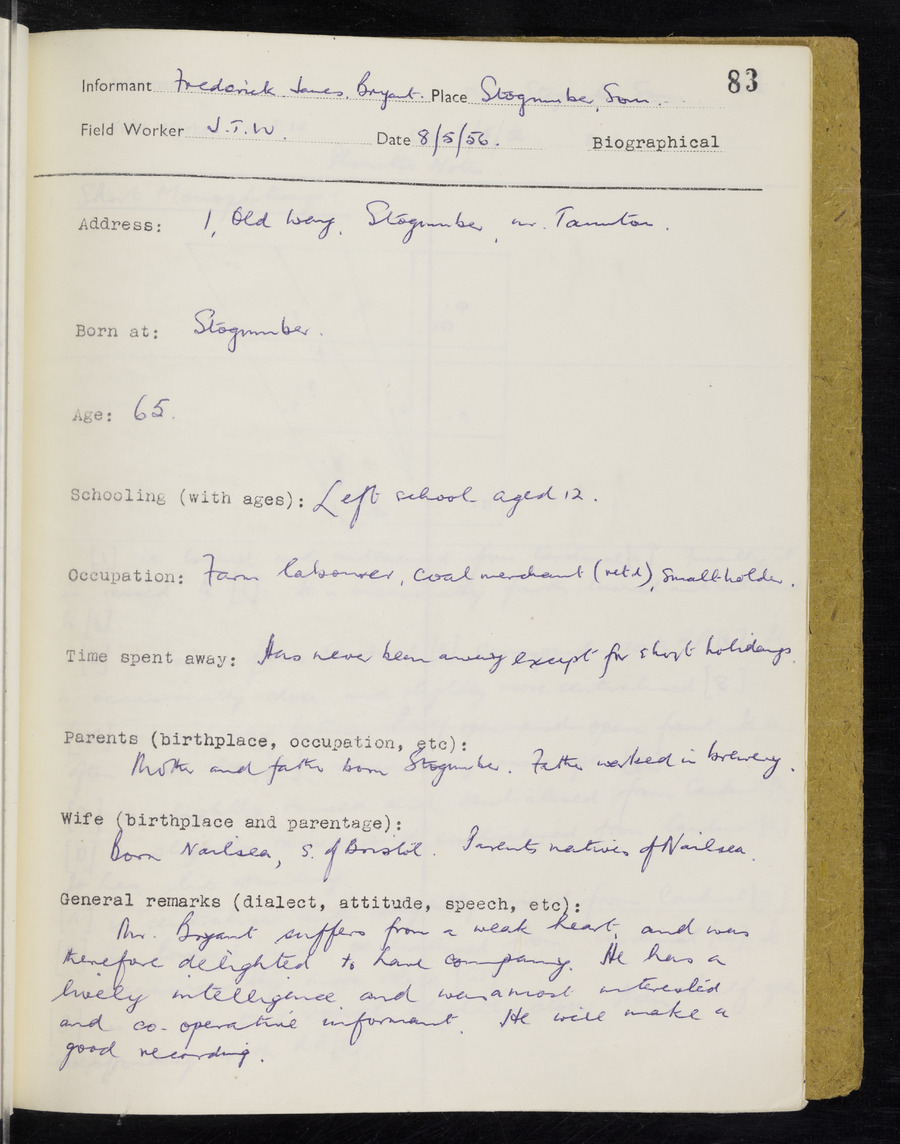 83
Informant Frederick James Bryant. Place Stogumber, Som.
Field Worker J.T.W. Date 8/5/56. Biographical
Address: 1, Old Way, Stogumber, nr. Taunton.
Born at: Stogumber.
Age: 65.
Schooling (with ages): Left school aged 12.
Occupation: Farm labourer, coal merchant (retd), smallholder.
Time spent away: Has never been away except for short holidays.
Parents (birthplace, occupation, etc):
Mother and father born Stogumber. Father worked in brewery.
Wife (birthplace and parentage):
Born Nailsea, S. of Bristol. Parents natives of Nailsea.
General remarks (dialect, attitude, speech, etc):
Mr. Bryant suffers from a weak heart, and was
therefore delighted to have company. He has a
lively intelligence and was a most interested
and co-operative informant. He will make a
good recording.